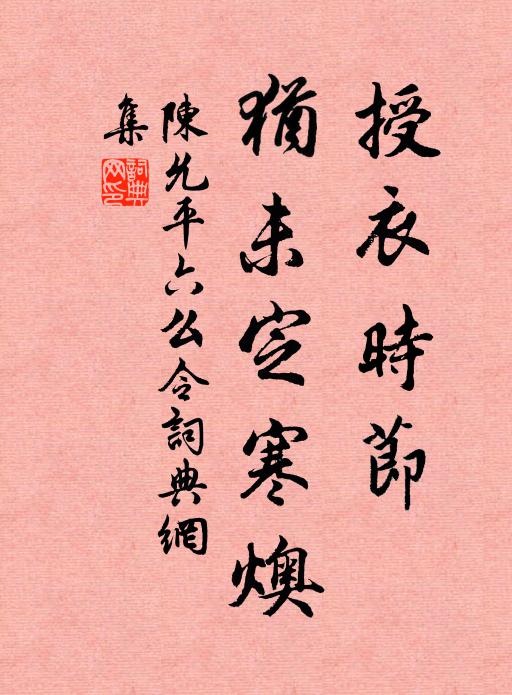 授衣時節
猶未定寒燠
陳允平六么令詞典網
集
詞典網印